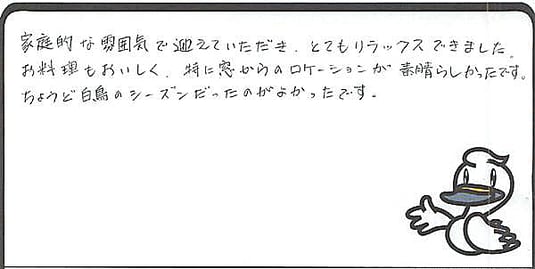 家庭的な雰囲気で迎えていただき、とてもリラックスできました。
お料理もおいしく、特に窓からのロケーションが素晴らしかったです。
ちょうど白鳥のシーズンだったのがよかったです。